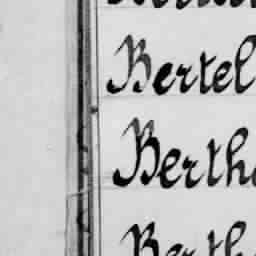 Bertel
Bertha
Berth